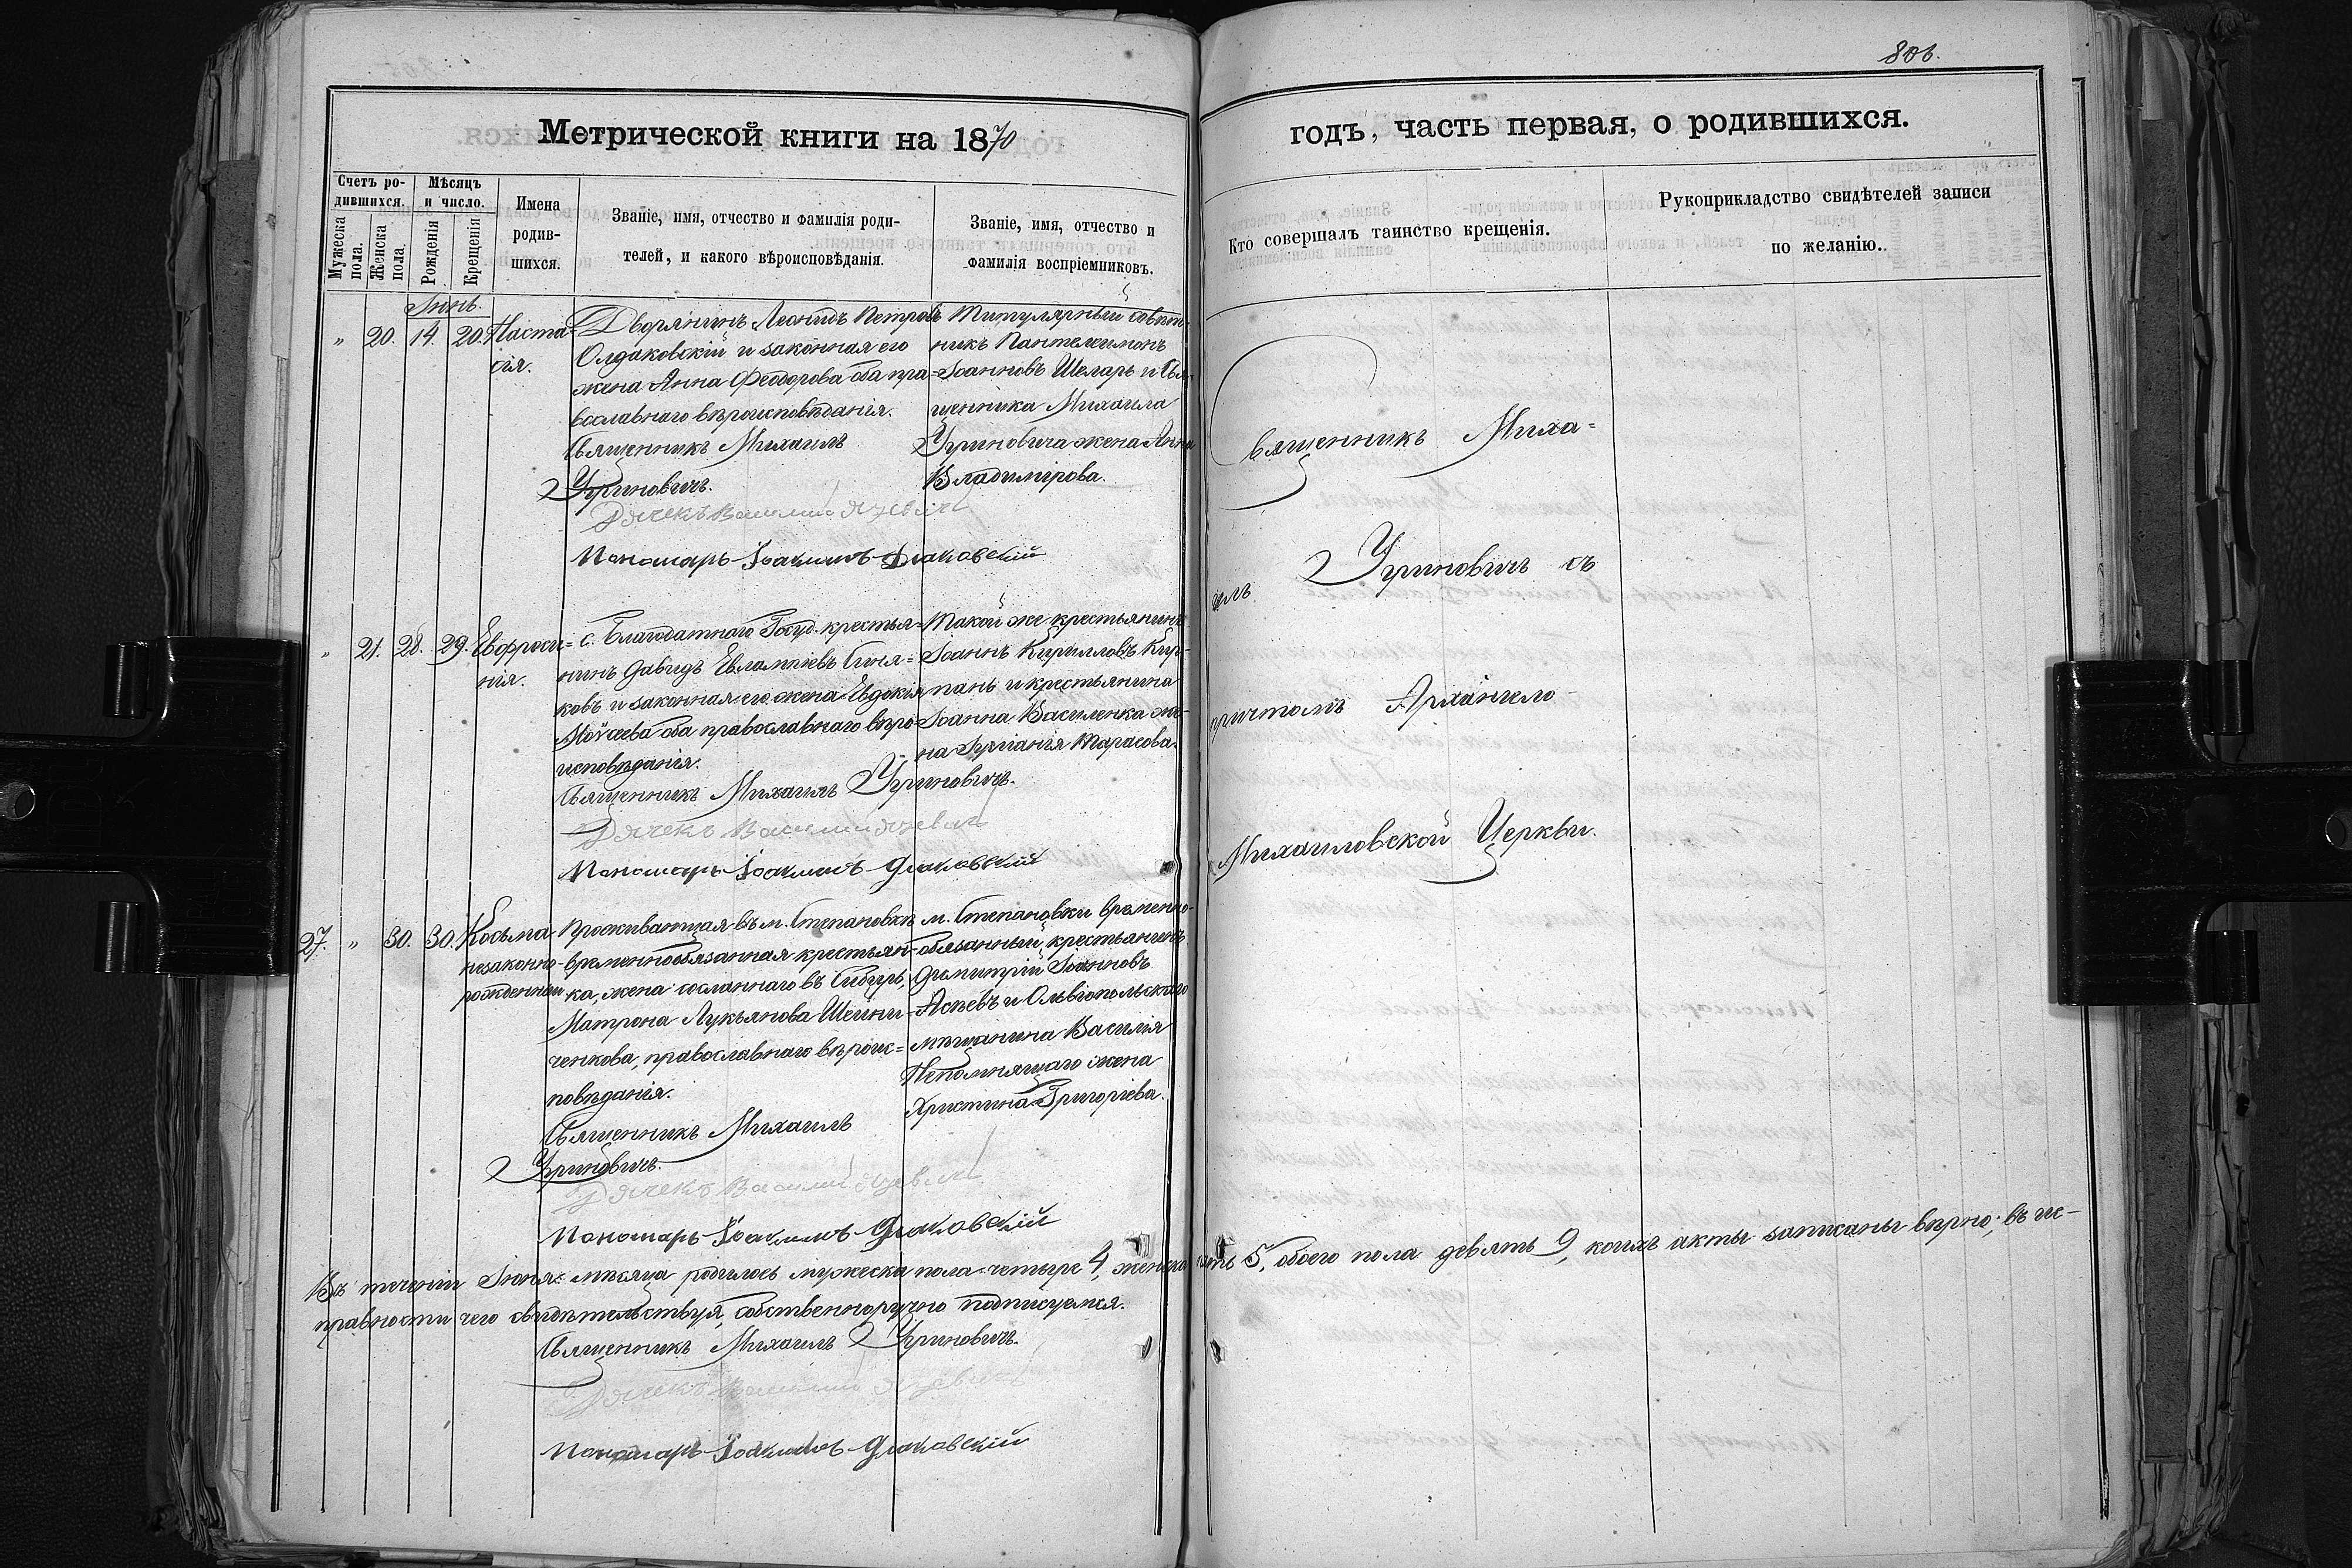 806.
Метрической книги на 1870
годъ, часть первая, о родившихся.
Счетъ ро-
дившихся.
Мѣсяцъ
и число.
Мужеска
пола.
Женска
пола.
Рожденія
Крещенія
Имена
родив-
шихся.
Званіе, имя, отчество и фамилія роди-
телей, и какого вѣроисповѣданія.
Званіе, имя, отчество и
фамилія воспріемниковъ.
Кто совершалъ таинство крещенія.
Рукоприкладство свидѣтелей записи
по желанію..
Іюнь.
" 20. 14. 20. Наста=
сія.
Дворянинъ Леонидъ Петровъ
Олдаковскій и законная его
жена Анна Феодорова оба пра=
вославнаго вѣроисповѣданія.
Священникъ Михаилъ
Уриновичъ.
Дячекъ Василий
Пономарь Іоакимъ Дяковскій
Титулярный Совѣт-
никъ Пантелеимонъ
Іоанновъ Шемарь и Свя-
щенника Михаила
Уриновича жена Анна
Владимірова.
" 21. 28. 29. Евфроси=
нія.
с. Благодатнаго Госуд. крестья=
нинъ Давидъ Евлампіевъ Синя=
ковъ и законная его жена Евдокія
Моѵсеева оба православнаго вѣро-
исповѣданія.
Священникъ Михаилъ Уриновичъ.
Дячекъ Василий
Пономарь Іоакимъ Дяковскій
Такой же крестьянинъ
Іоаннъ Кирилловъ Кир-
пань и крестьянина
Іоанна Василенка же-
на Іуліанія Тарасова.
27. " 30. 30. Косьма
незаконно-
рожденный
Проживающая въ м. Степановкѣ
временнообязанная крестьян-
ка, жена сосланнаго въ Сибирь,
Матрона Лукьянова Шейни-
ченкова, православнаго вѣроис=
повѣданія.
Священникъ Михаилъ
Уриновичъ.
Дячекъ Василий
Пономарь Іоакимъ Дяковскій
м. Степановки временно-
обязанный крестьянинъ
Димитрій Іоанновъ
Асѣевъ и Ольвіопольскаго
мѣщанина Василія
Непомнящаго жена
Христина Григоріева.
Священникъ Миха=
илъ Уриновичъ съ
причтомъ Архангело-
Михаиловской Церкви.
Въ теченіи Іюня мѣсяца родилось мужеска пола четыре 4, женска пять 5, обоего пола девять 9, коихъ акты записаны вѣрно; въ ис-
правности чего свидѣтельствуя, собственноручно подписуемся.
Священникъ Михаилъ Уриновичъ.
Дячекъ Василий
Пономарь Іоакимъ Дяковскій